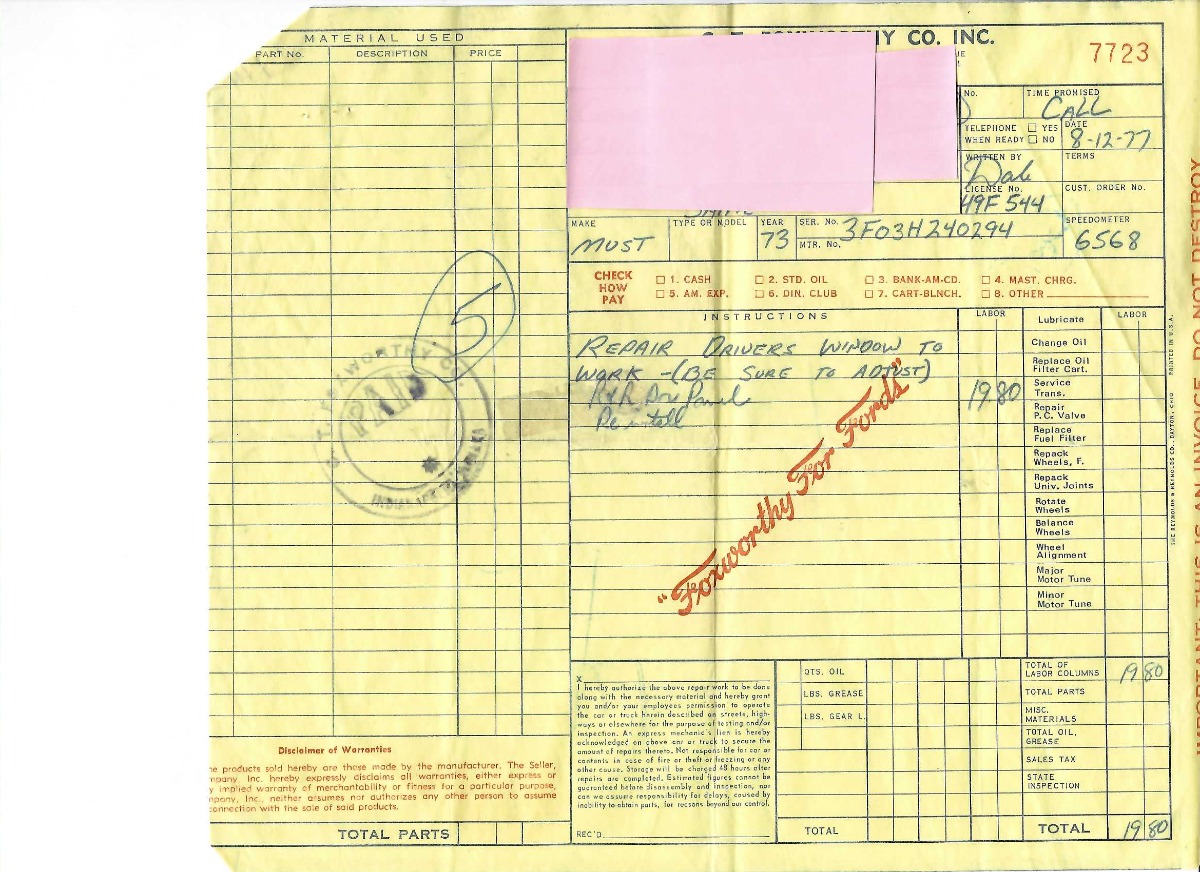 MATERIAL USED
PART No. DESCRIPTION PRICE
FOXWORTHY CO. INC.
7723
No. TIME PROMISED
CALL
TELEPHONE WHEN READY ☐ YES ☐ NO
DATE
8-12-77
WRITTEN BY
Dale
TERMS
LICENSE No.
49F 544
CUST. ORDER No.
MAKE
MUST
TYPE OR MODEL
YEAR
73
SER. No. 3F03H240294
MTR. No.
SPEEDOMETER
6568
CHECK HOW PAY
☐ 1. CASH ☐ 2. STD. OIL ☐ 3. BANK-AM-CD. ☐ 4. MAST. CHRG.
☐ 5. AM. EXP. ☐ 6. DIN. CLUB ☐ 7. CART-BLNCH. ☐ 8. OTHER
INSTRUCTIONS
LABOR
LABOR
REPAIR DRIVERS WINDOW TO
WORK -(BE SURE TO ADJUST)
R&R Panel
19 80
"Foxworthy For Fords"
5
PAID
Lubricate
Change Oil
Replace Oil
Filter Cart.
Service
Trans.
Repair
P.C. Valve
Replace
Fuel Filter
Repack
Wheels, F.
Repack
Univ. Joints
Rotate
Wheels
Balance
Wheels
Wheel
Alignment
Major
Motor Tune
Minor
Motor Tune
Disclaimer of Warranties
products sold hereby are those made by the manufacturer. The Seller,
Inc. hereby expressly disclaims all warranties, either express or
implied warranty of merchantability or fitness for a particular purpose,
Inc., neither assumes nor authorizes any other person to assume
connection with the sale of said products.
TOTAL PARTS
X
I hereby authorize the above repair work to be done
along with the necessary material and hereby grant
you and/or your employees permission to operate
the car or truck herein described on streets, high-
ways or elsewhere for the purpose of testing and/or
inspection. An express mechanic's lien is hereby
acknowledged on above car or truck to secure the
amount of repairs thereto. Not responsible for car or
contents in case of fire or theft or freezing or any
other cause. Storage will be charged 48 hours after
repairs are completed. Estimated figures cannot be
guaranteed before disassembly and inspection, nor
can we assume responsibility for delays, caused by
inability to obtain parts, for reasons beyond our control.
REC'D.
QTS. OIL
LBS. GREASE
LBS. GEAR L.
TOTAL
TOTAL OF
LABOR COLUMNS 19 80
TOTAL PARTS
MISC.
MATERIALS
TOTAL OIL,
GREASE
SALES TAX
STATE
INSPECTION
TOTAL 19 80
THE REYNOLDS & REYNOLDS CO., DAYTON, OHIO PRINTED IN U.S.A.
THIS IS AN INVOICE. DO NOT DESTROY